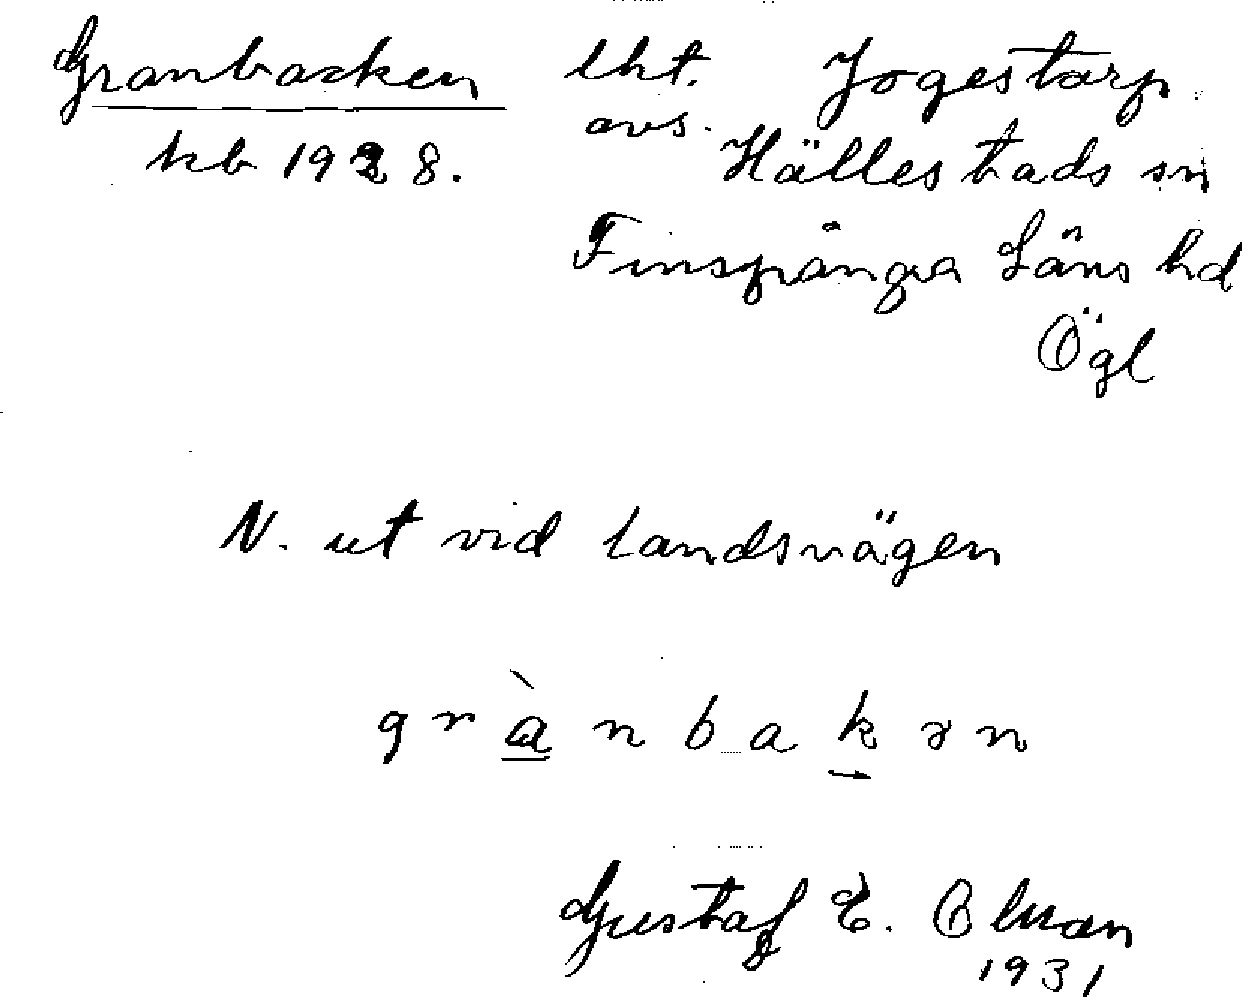 Granbacken lht. Jogestorp
avs. Hällestads sn
kb 1928.
Finspånga Läns hd
Ögl
N. ut vid landsvägen
grànbakən
Gustaf E. Olman
1931